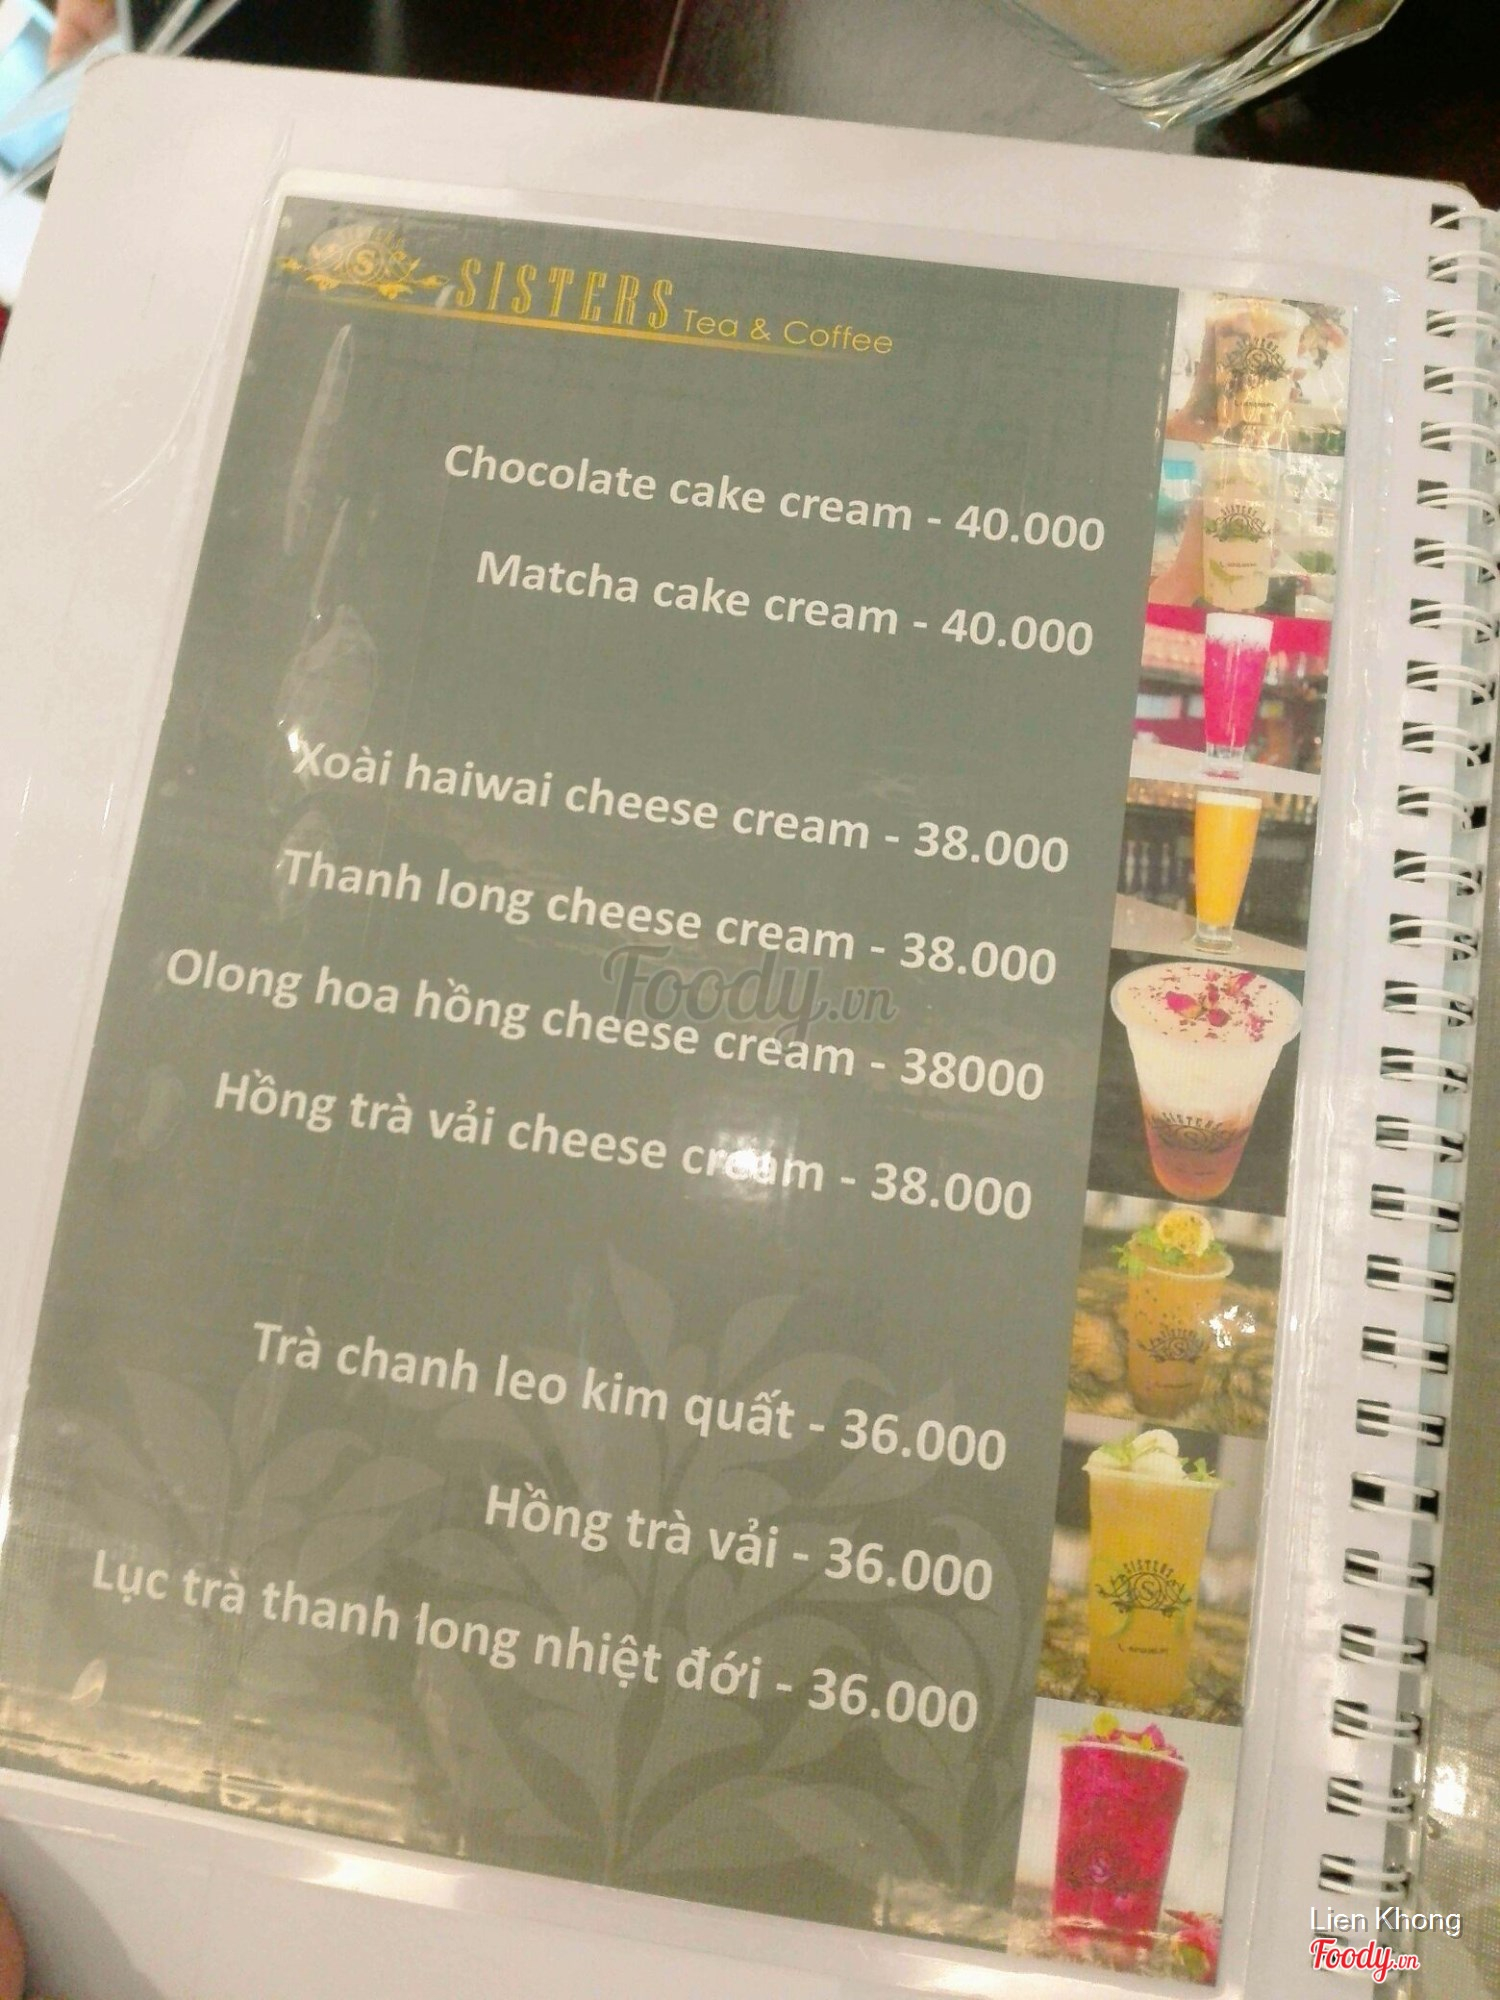 SISTERS Tea & Coffee
Chocolate cake cream - 40.000
Matcha cake cream - 40.000
Xoài haiwai cheese cream - 38.000
Thanh long cheese cream - 38.000
Olong hoa hồng cheese cream - 38000
Hồng trà vải cheese cream - 38.000
Trà chanh leo kim quất - 36.000
Hồng trà vải - 36.000
Lục trà thanh long nhiệt đới - 36.000
Foody.vn
SISTERS
SISTERS
SISTERS
Lien Khong
Foody.vn